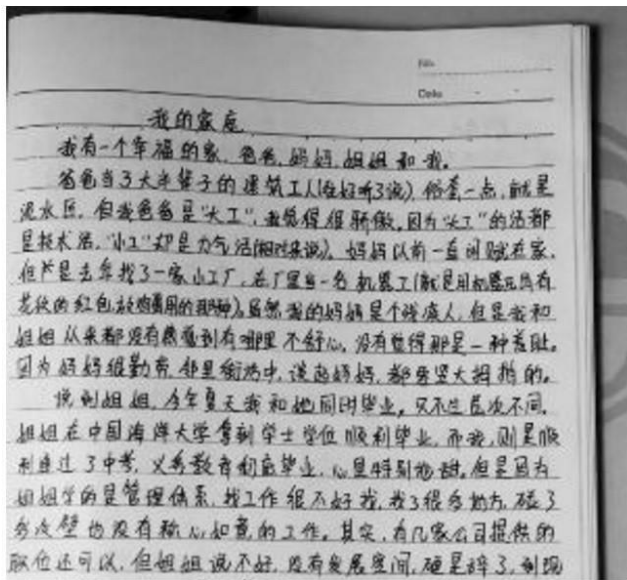 No.
Date
我的家庭
我有一个幸福的家，爸爸，妈妈，姐姐和我。
爸爸当了大半辈子的建筑工人(往好听了说)，俗套一点，就是
泥水匠，但我爸爸是“大工”，我觉得很骄傲。因为“大工”的活都
是技术活，“小工”却是力气活(相对来说)。妈妈以前一直闲赋在家，
但于是去年找了一家小工厂，在厂里当一名机器工(就是用机器压有
花纹的红包，放鸡蛋用的那种)。虽然我的妈妈是个残疾人，但是我和
姐姐从来都没有感觉到有哪里不舒心，没有觉得那是一种羞耻。
因为妈妈很勤劳，邻里街坊中，谈起妈妈，都要竖大拇指的。
说到姐姐，今年夏天我和她同时毕业，只不过层次不同。
姐姐在中国海洋大学拿到学士学位顺利毕业，而我，则是顺
利通过了中考，义务教育彻底毕业，心里特别抱甜。但是因为
姐姐学的是管理体系，找工作很不好找，找了很多地方，碰了
多次壁也没有称心如意的工作。其实，有几家公司提供的
职位还可以，但姐姐说不好，没有发展空间，硬是辞了，到现